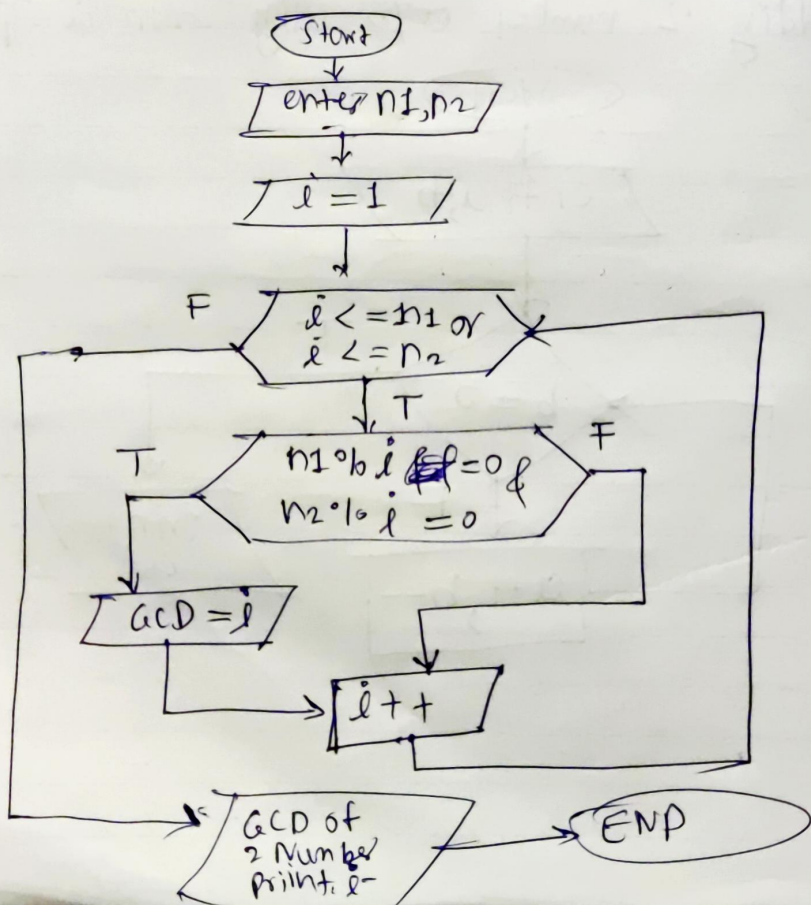 Start
enter n1,n2
i = 1
F
i <= n1 or
i <= n2
T
T
n1 % i = 0 &
n2 % i = 0
F
GCD = i
i++
GCD of
2 Number
priint, i
END